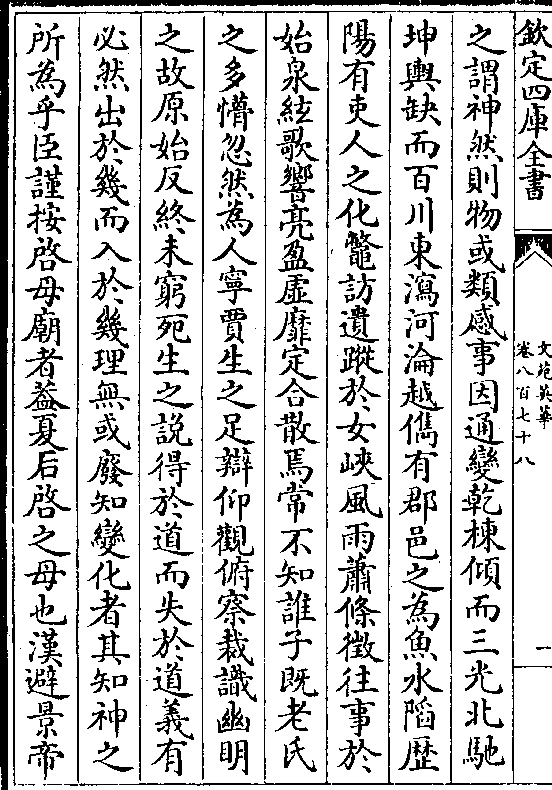 欽定四庫全書
文苑英華
卷八百七十八
一
之謂神然則物或類感事因通變乾棟傾而三光北馳
坤輿缺而百川東瀉河淪越儁有郡邑之為魚水䧟歴
陽有吏人之化鼈訪遺蹤於女峽風雨蕭條徵往事於
始泉絃歌響亮盈虚靡定合散焉常不知誰子既老氏
之多懵忽然為人寧賈生之足辯仰觀俯察裁識幽明
之故原始反終未窮死生之説得於道而失於道義有
必然出於幾而入於幾理無或廢知變化者其知神之
所為乎臣謹按啓母廟者葢夏后啓之母也漢避景帝